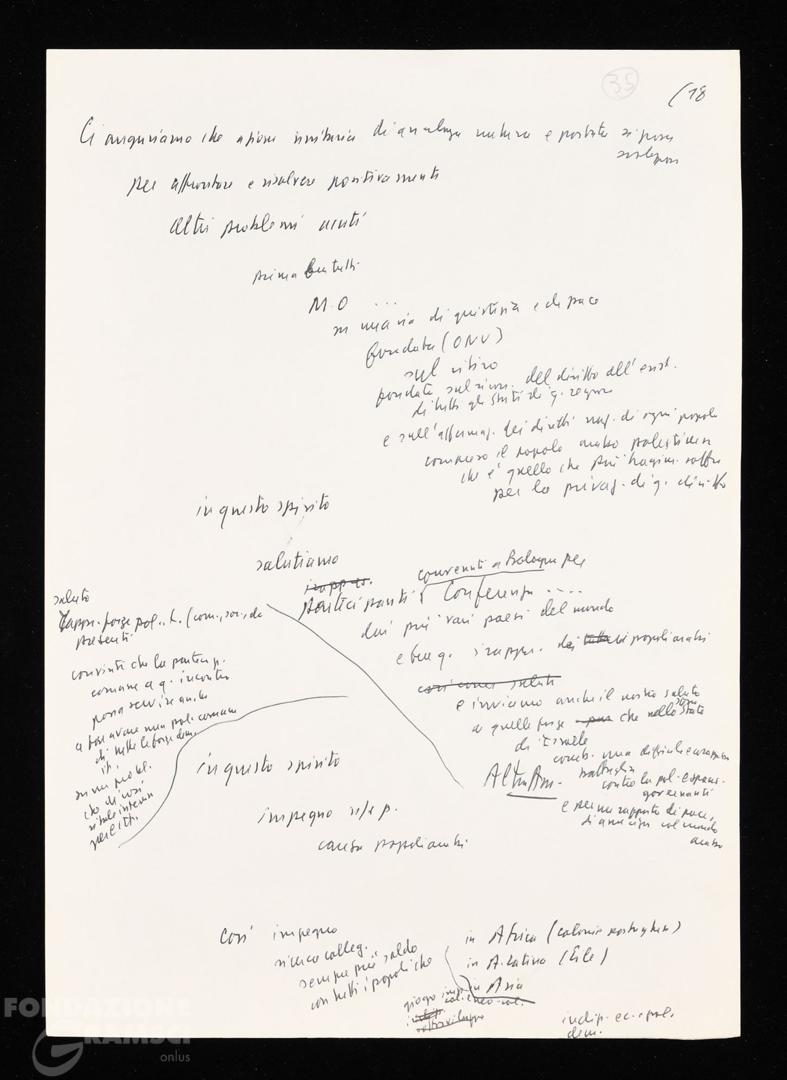 35
(18
Ci auguriamo che azione unitaria di analoga natura e portata si possa
sviluppare
per affrontare e risolvere positivamente
altri problemi acuti
prima fra tutti
M.O ...
una via di giustizia e di pace
fondata (ONU)
sul ritiro
fondata sul ricon. del diritto all'esist.
di tutti gli Stati di q. regione
e sull'affermaz. dei diritti naz. di ogni popolo
compreso il popolo arabo palestinese
che è quello che più soffre
per la privaz. di q. diritto
in questo spirito
salutiamo
i rappr.
convenuti a Bologna per
partecipanti Conferenza ....
dai più vari paesi del mondo
e tra q. i rappr. dei popoli arabi
così come saluti
e inviamo anche il nostro saluto
a quelle forze che nello Stato
di Israele
comb. una difficile e coraggiosa
battaglia
contro la pol. espans.
governanti
e per un rapporto di pace,
di amicizia col mondo
arabo
saluto
rappr. forze pol. it. (com., soc., dc
presenti
convinti che la partecip.
comune a q. incontro
possa servire anche
a favorire una pol. comune
di tutte le forze dem.
it.
su un probl.
che di così
vitale interesse
per l'It.
Altra Am.
in questo spirito
impegno
causa popoli arabi
Così impegno
sempre più saldo
con tutti i popoli che
in Africa (colonie portoghesi)
in A. Latina (Cile)
in Asia
giogo imp.
sottosviluppo
indip. ec. e pol.
dem.
FONDAZIONE
GRAMSCI
onlus